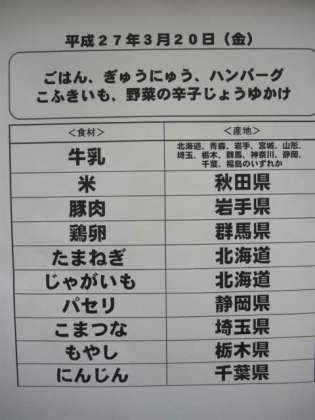 平成27年3月20日（金）
ごはん、ぎゅうにゅう、ハンバーグ
こふきいも、野菜の辛子じょうゆかけ
＜食材＞ ＜産地＞
牛乳 北海道、青森、岩手、宮城、山形、
埼玉、栃木、群馬、神奈川、静岡、
千葉、福島のいずれか
米 秋田県
豚肉 岩手県
鶏卵 群馬県
たまねぎ 北海道
じゃがいも 北海道
パセリ 静岡県
こまつな 埼玉県
もやし 栃木県
にんじん 千葉県